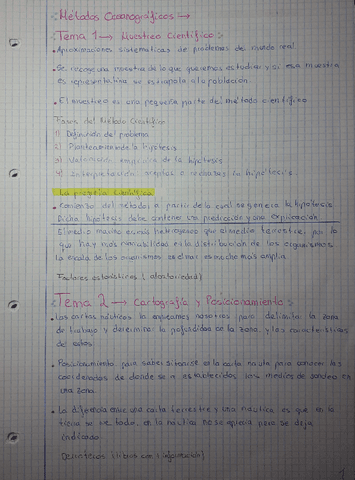 :Métodos Oceanográficos →
:Tema 1 → Muestreo Científico:
• Aproximaciones sistemáticas de problemas del mundo real.
• Se recoge una muestra de lo que queremos estudiar y si esa muestra
es representativa se extrapola a la población.
• El muestreo es una pequeña parte del método científico
Fases del Método Científico
1) Definición del problema
2) Planteamiento de la hipótesis
3) Validación empírica de la hipótesis
4) Interpretación, aceptas o rechazas la hipótesis.
La pregunta científica
• Comienzo del método, a partir de la cual se genera la hipótesis
Dicha hipótesis debe contener una predicción y una explicación
El medio marino es más heterogéneo que el medio terrestre, por lo
que hay más variabilidad en la distribución de los organismos
la escala de los oceanos es mucho más amplia.
Factores estocásticos (aleatoriedad)
:Tema 2 → Cartografía y Posicionamiento:
• Las cartas náuticas la empleamos nosotros para delimitar la zona
de trabajo y determinar la profundidad de la zona, y las características
de estos.
• Posicionamiento para saber situarse en la carta náutica para conocer las
coordenadas de donde se a establecidos los medios de sondeo en
una zona.
• La diferencia entre una carta terrestre y una náutica es que en la
tierra se ve todo, en la náutica no se
indicando.
Derroteros (libros con información)
1